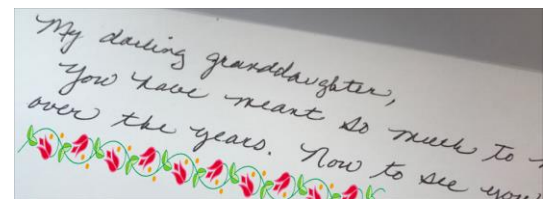 My darling granddaughter,
You have meant so much to
over the years. Now to see you